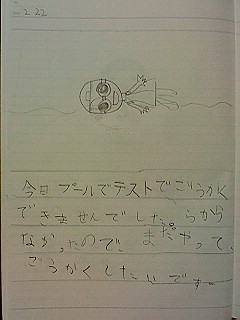 2.22
今日プールでテストでごうかく
できませんでした。らから
なかったので、まだやって、
ごうかくしたいです。